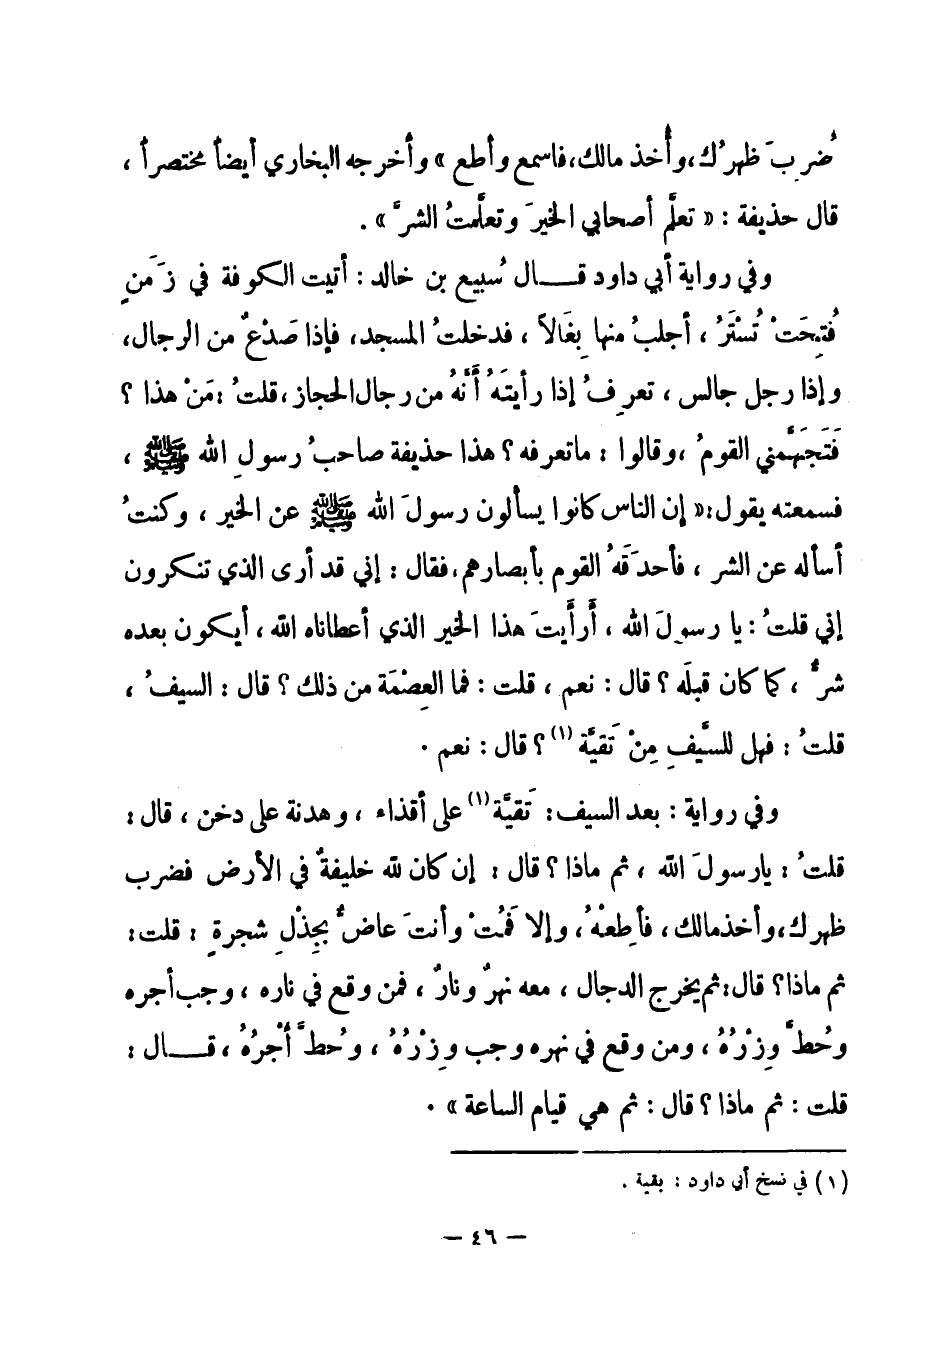 ضُرِبَ ظهرُك، وأُخذ مالك، فاسمع وأطع » وأخرجه البخاري أيضاً مختصراً ،
قال حذيفة : « تعلَّم أصحابي الخيرَ وتعلَّمتُ الشرَّ » .
وفي رواية أبي داود قـــال سُبيع بن خالد : أتيت الكوفة في زَمَنِ
فُتِحَتْ تُسْتَرُ ، أجلبُ منها بِغَالاً ، فدخلتُ المسجد، فإذا صَدْعٌ من الرجال،
وإذا رجل جالس ، تعرِفُ إذا رأيتَهُ أَنَّهُ من رجال الحجاز ، قلتُ : مَنْ هذا ؟
فَتَجَهَّمني القومُ ، وقالوا : ما تعرفه ؟ هذا حذيفة صاحبُ رسولِ الله ﷺ ،
فسمعته يقول : « إن الناس كانوا يسألون رسولَ الله ﷺ عن الخير ، وكنتُ
أسأله عن الشر ، فأحدَقَهُ القوم بأبصارهم، فقال : إني قد أرى الذي تنكرون
إني قلتُ : يا رسولَ الله ، أَرأَيتَ هذا الخير الذي أعطاناه الله ، أيكون بعده
شرٌّ ، كما كان قبلَه ؟ قال : نعم ، قلت : فما العِصْمَة من ذلك ؟ قال : السيفُ ،
قلتُ : فهل للسَّيفِ مِنْ تَقيَّة (١) ؟ قال : نعم .
وفي رواية : بعد السيف : تَقيَّة (١) على أقذاء ، وهدنة على دخن ، قال :
قلتُ : يارسولَ الله ، ثم ماذا ؟ قال : إن كان لله خليفةٌ في الأرض فضرب
ظهرك، وأخذ مالك ، فأطِعْهُ ، وإلا فَمُتْ وأنتَ عاضٌّ بِجِذْلِ شجرةٍ : قلت :
ثم ماذا ؟ قال : ثم يخرج الدجال ، معه نهرٌ ونارٌ ، فمن وقع في ناره ، وجب أجره
وحُطَّ وِزْرُهُ ، ومن وقع في نهره وجب وِزْرُهُ ، وحُطَّ أجْرُهُ ، قـــال :
قلت : ثم ماذا ؟ قال : ثم هي قيام الساعة » .
(١) في نسخ أبي داود : بقية .
— ٤٦ —